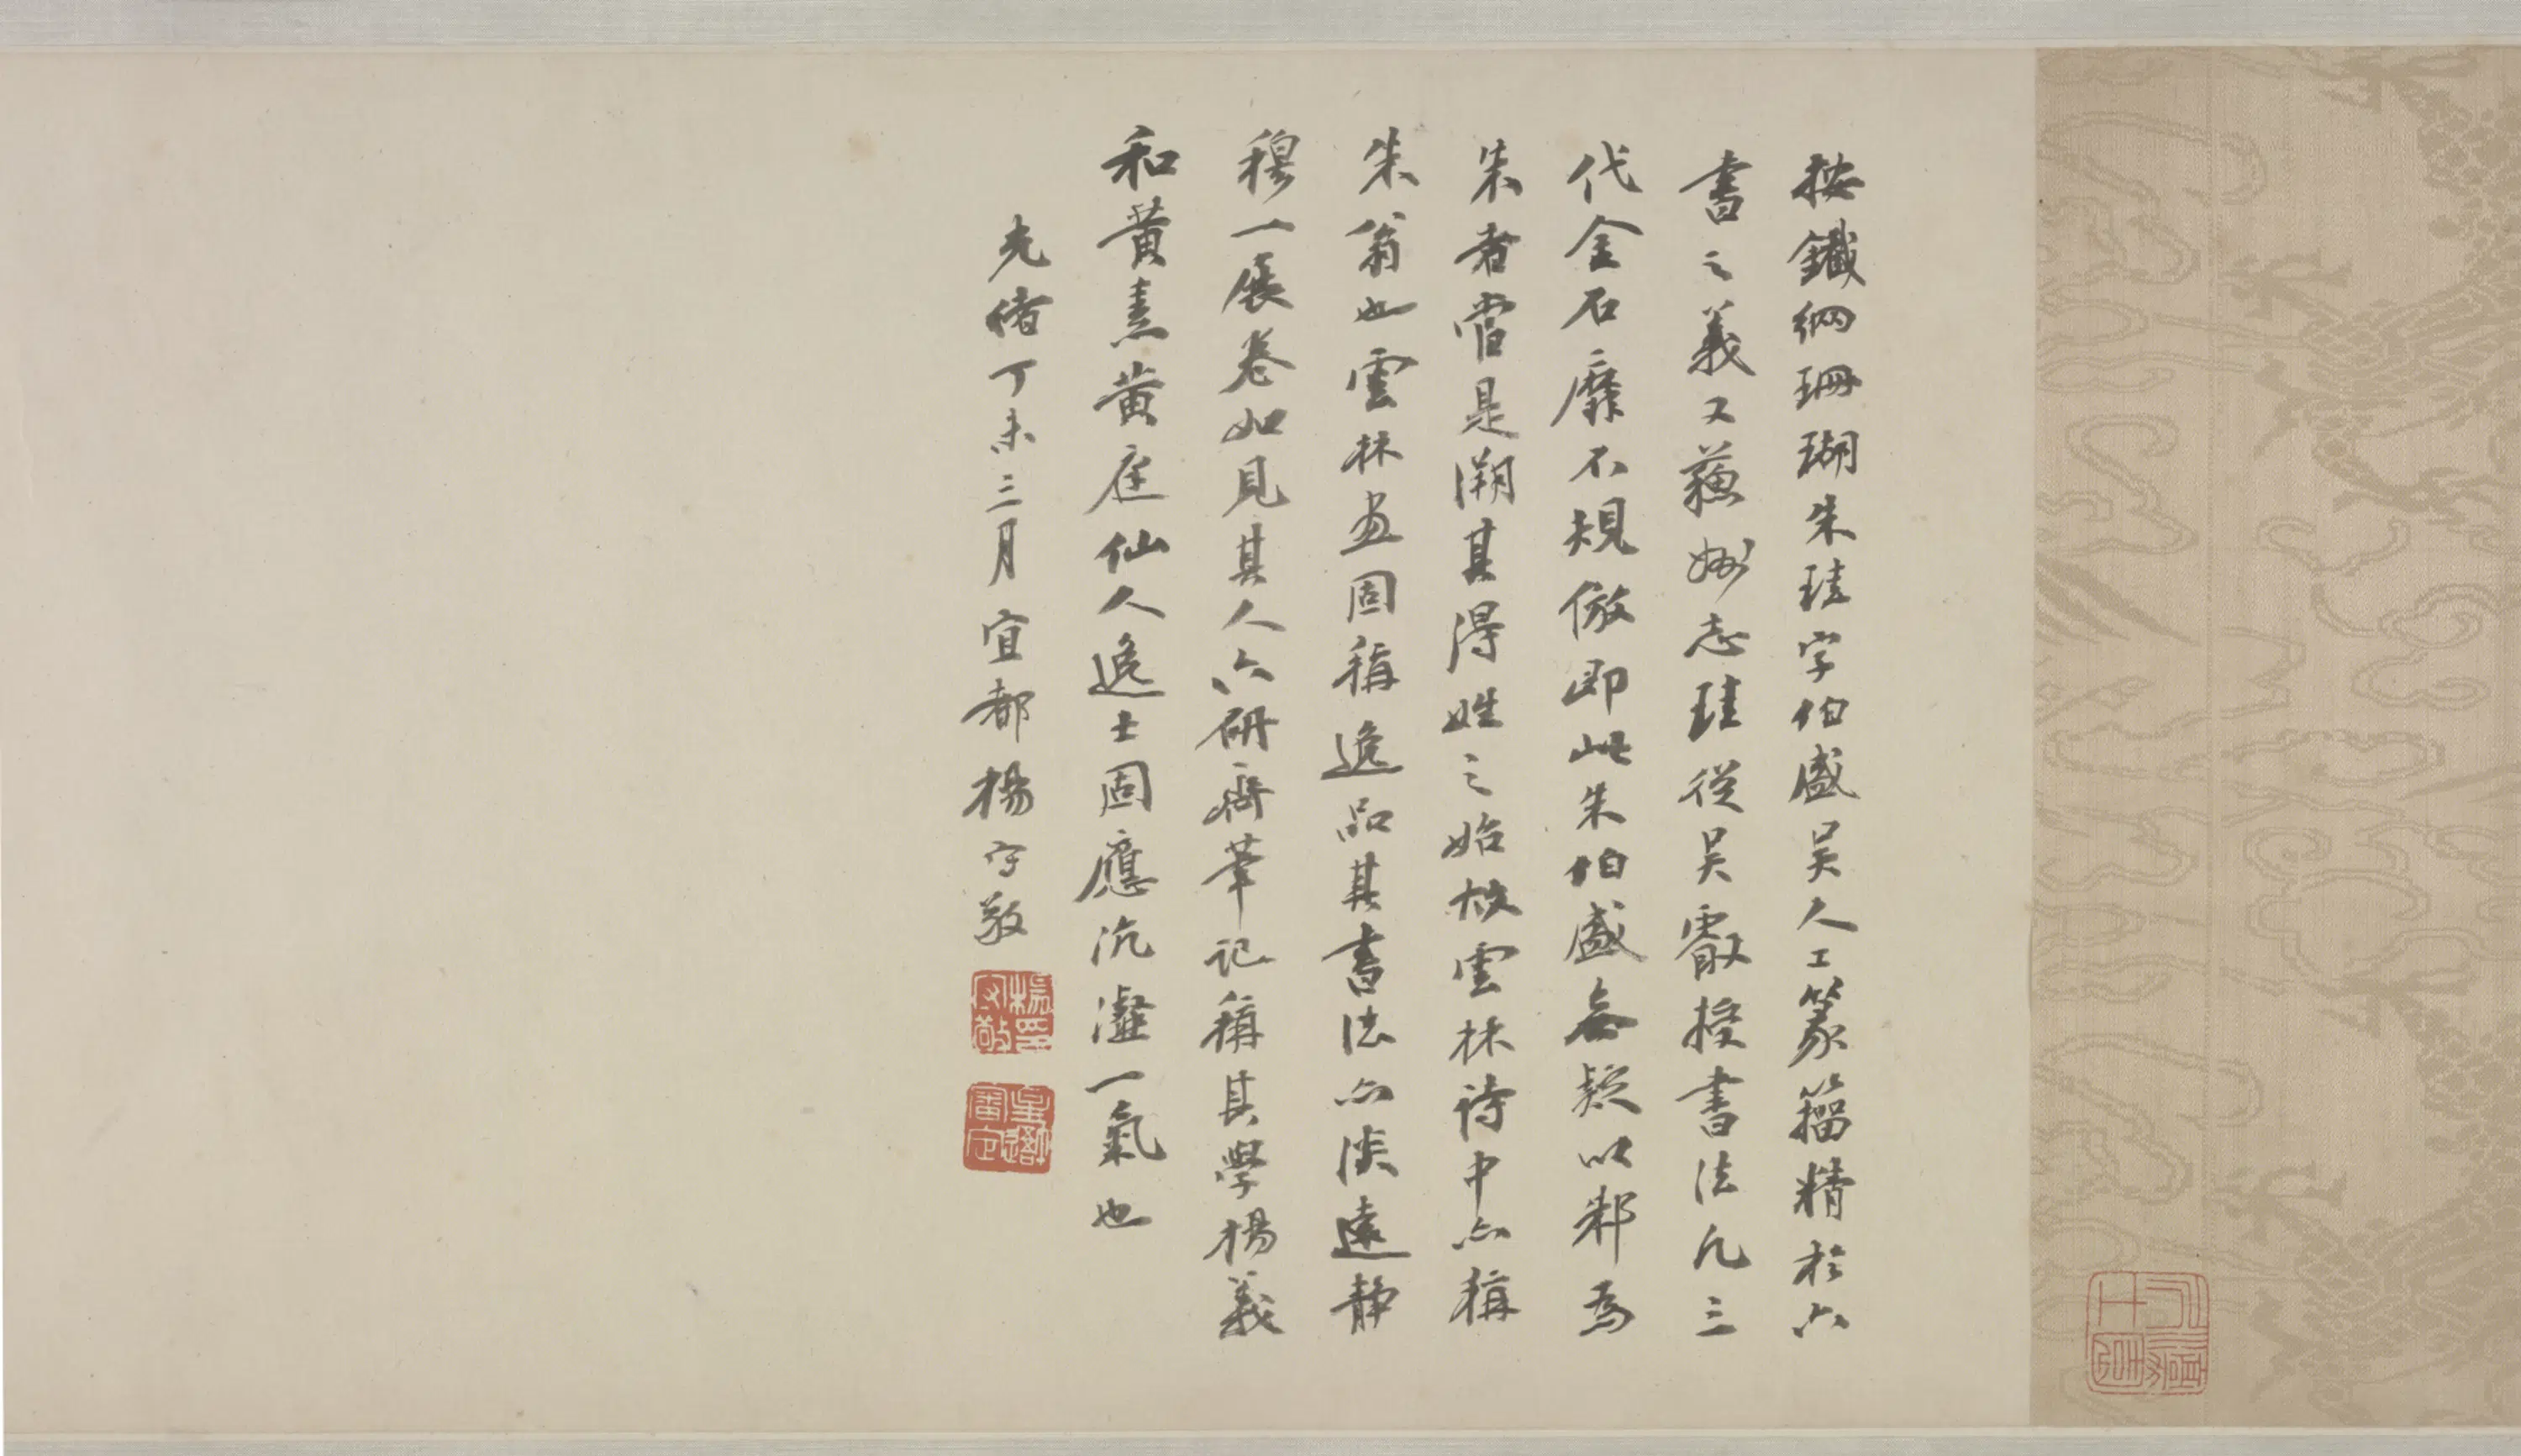 按鐵網珊瑚朱珪字伯盛吴人工篆籀精於六
書之義又蘓州志珪從吴叡授書法凡三
代金石靡不規倣即此朱伯盛無疑以邾為
朱者當是溯其得姓之始故雲林詩中亦稱
朱翁也雲林画固稱逸品其書法亦淡遠静
穆一展卷如見其人六研齋筆記稱其學楊義
和黄素黄庭仙人逸士固應沆瀣一氣也
光緒丁未三月宜都楊守敬
楊印守敬
星吾審定